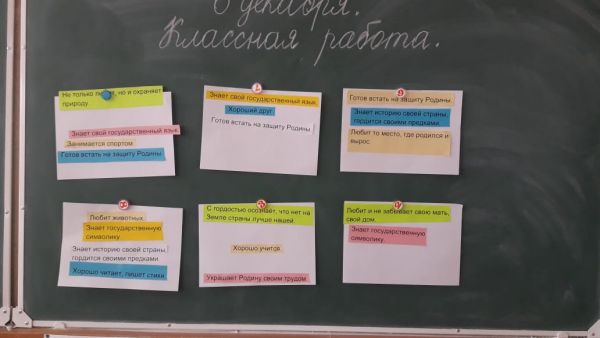 6 декабря.
Классная работа.
Не только любит, но и охраняет
природу.
Знает свой государственный язык.
Занимается спортом
Готов встать на защиту Родины
Знает свой государственный язык.
Хороший друг
Готов встать на защиту Родины
Готов встать на защиту Родины.
Знает историю своей страны,
гордится своими предками.
Любит то место, где родился и
вырос.
Любит животных.
Знает государственную
символику.
Знает историю своей страны,
гордится своими предками.
Хорошо читает, пишет стихи
С гордостью осознает, что нет на
Земле страны лучше нашей.
Хорошо учится.
Украшает Родину своим трудом
Любит и не забывает свою мать,
свой дом.
Знает государственную
символику.